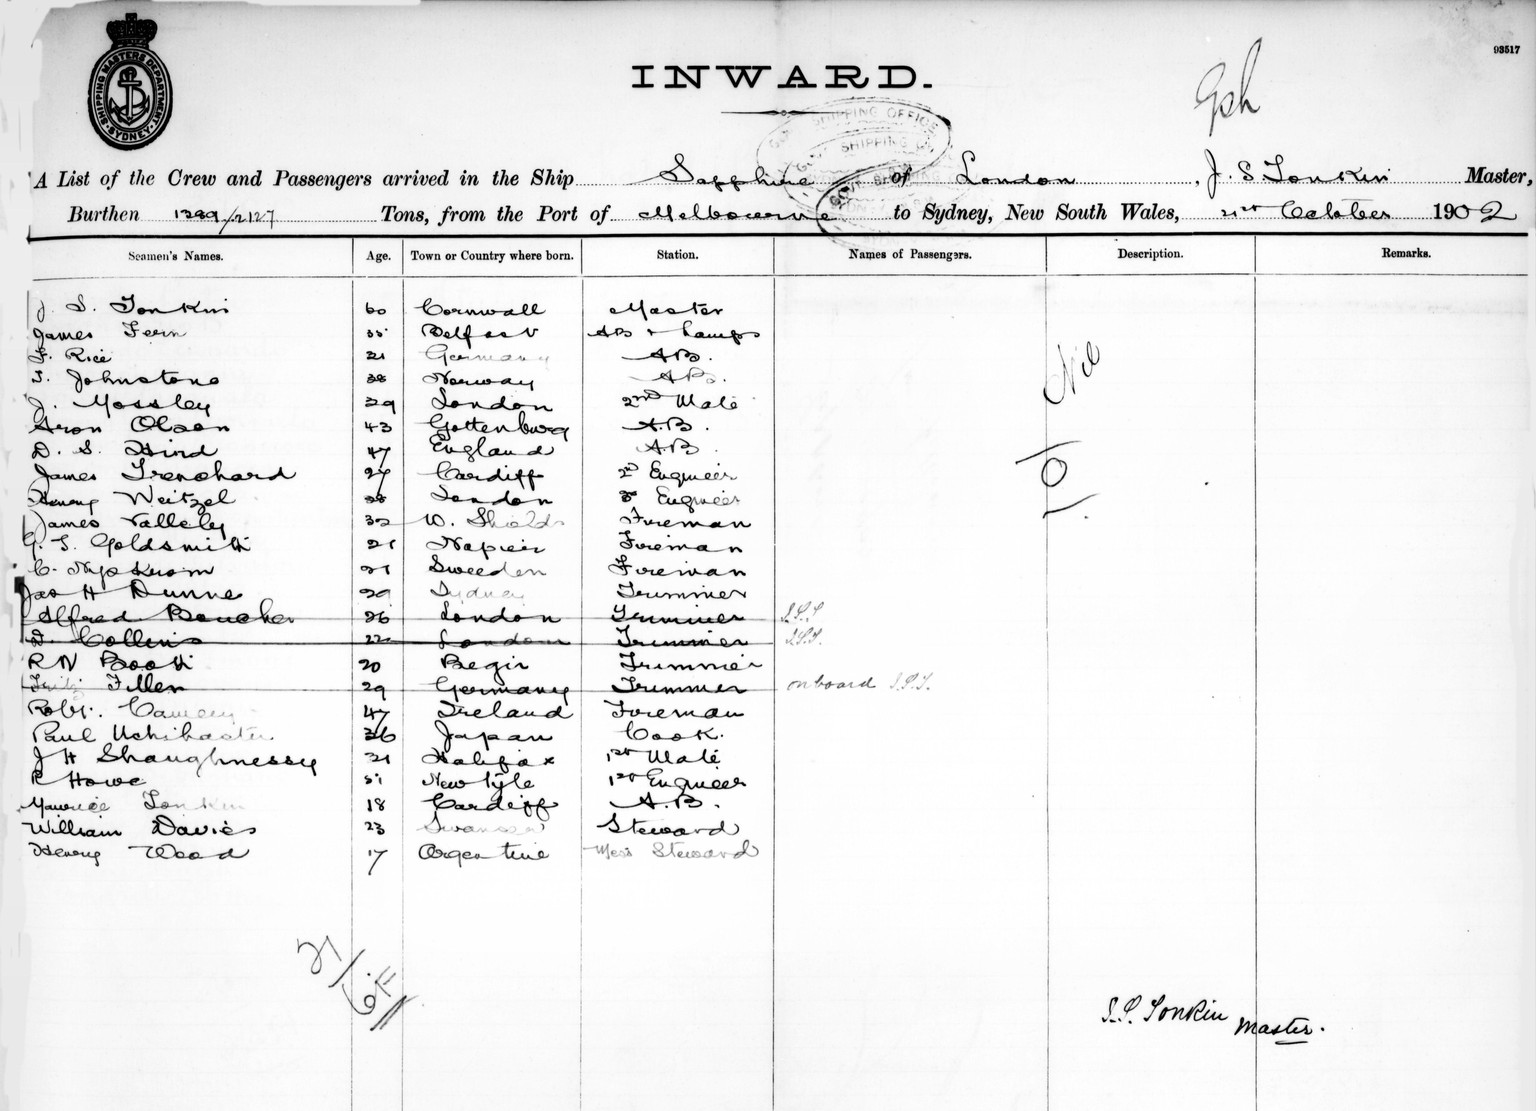 93517
SHIPPING MASTERS DEPARTMENT SYDNEY
INWARD.
SHIPPING OFFICE
A List of the Crew and Passengers arrived in the Ship Sapphire of London, J. S. Tonkin Master,
Burthen 1299/2127 Tons, from the Port of Melbourne to Sydney, New South Wales, 21st October 1902
Seamen's Names. Age. Town or Country where born. Station. Names of Passengers. Description. Remarks.
J. S. Tonkin 60 Cornwall Master
James Fern 35 Belfast AB & Lamps
F. Rice 21 Germany AB.
T. Johnstone 38 Norway AB.
J. Mossley 29 London 2nd Mate
Aron Olson 43 Gottenburg A.B.
D. S. Hird 47 England A.B.
James Trenchard 27 Cardiff 2nd Engineer
Henry Weitzel 28 London 3rd Engineer
James Valleley 32 W. Shields Fireman
G. T. Goldsmith 21 Napier Fireman
C. Nystrom 21 Sweeden Fireman
Jas H Dunne 29 Sydney Trimmer
Alfred Boucher 26 London Trimmer J.S.T
D. Collins 22 London Trimmer J.S.T.
R N Booth 20 Trimmer
Fritz Fillen 29 Germany Trimmer onboard J.S.T.
Robt. 47 Ireland Fireman
Paul 36 Japan Cook.
J H Shaughnessy 31 Halifax 1st Mate
R Howe 51 Newtyle 1st Engineer
Maurice Tonkin 18 Cardiff A.B.
William Davies 23 Swansea Steward
Henry Wood 17 Argentine Mess Steward
Nil
21/
J.S. Tonkin Master.